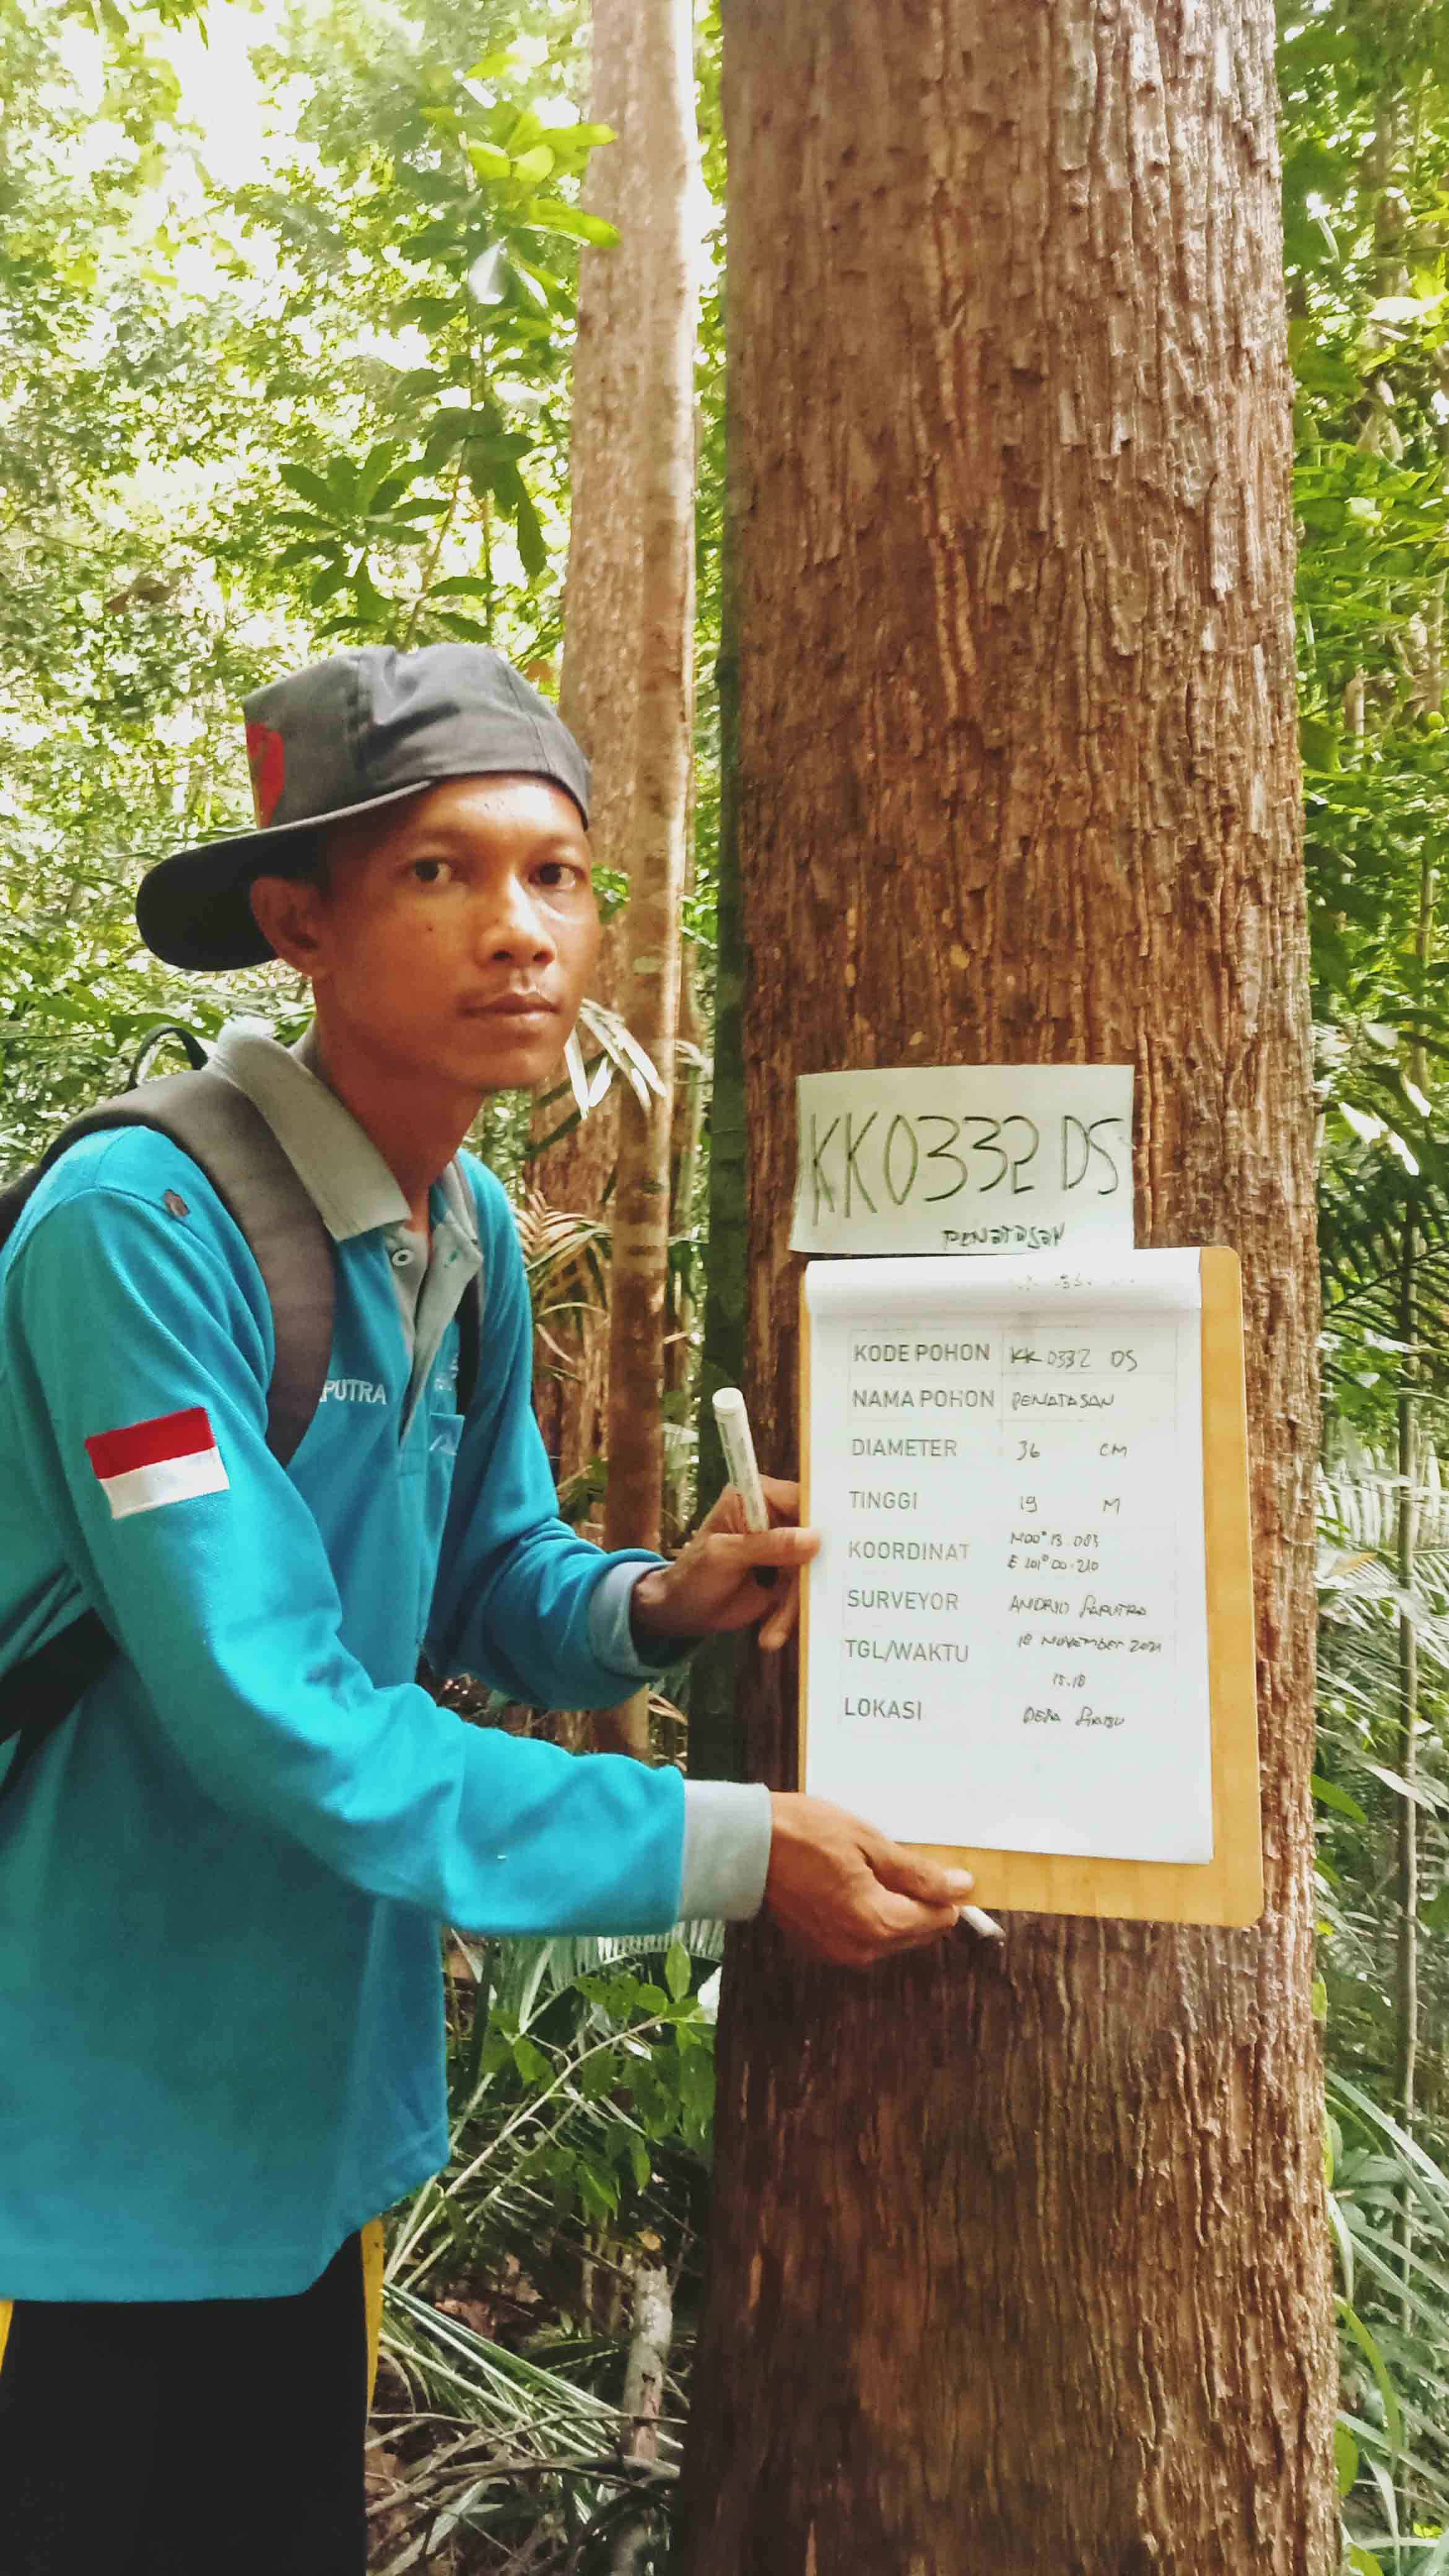 KK0332 DS
PENATASAN
KODE POHON KK 0332 DS
NAMA POHON PENATASAN
DIAMETER 36 CM
TINGGI 19 M
KOORDINAT N00° 13.083
E 101° 00.210
SURVEYOR ANDRIO SAPUTRA
TGL/WAKTU 18 NOVEMBER 2021
15.18
LOKASI DESA SIABU
PUTRA